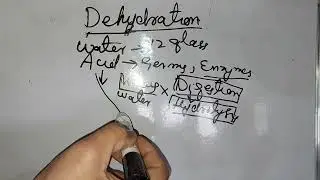 Dehydration
water → 12 glass
Acid → Germs, Enzymes
Digestion
water Hydrolysis